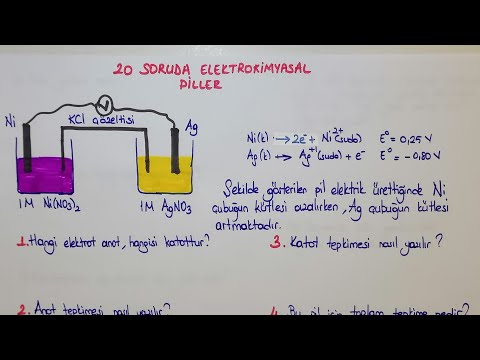 20 SORUDA ELEKTROKİMYASAL
PİLLER
V
Ni
KCl çözeltisi
Ag
1M Ni(NO3)2
1M AgNO3
Ni(k) → 2e- + Ni2+(suda) E° = 0,25 V
Ag(k) → Ag+1(suda) + e- E° = -0,80 V
Şekilde gösterilen pil elektrik ürettiğinde Ni
çubuğun kütlesi azalırken, Ag çubuğun kütlesi
artmaktadır.
1. Hangi elektrot anot, hangisi katottur?
3. Katot tepkimesi nasıl yazılır?
2. Anot tepkimesi nasıl yazılır?
4. Bu pil için toplam tepkime nedir?